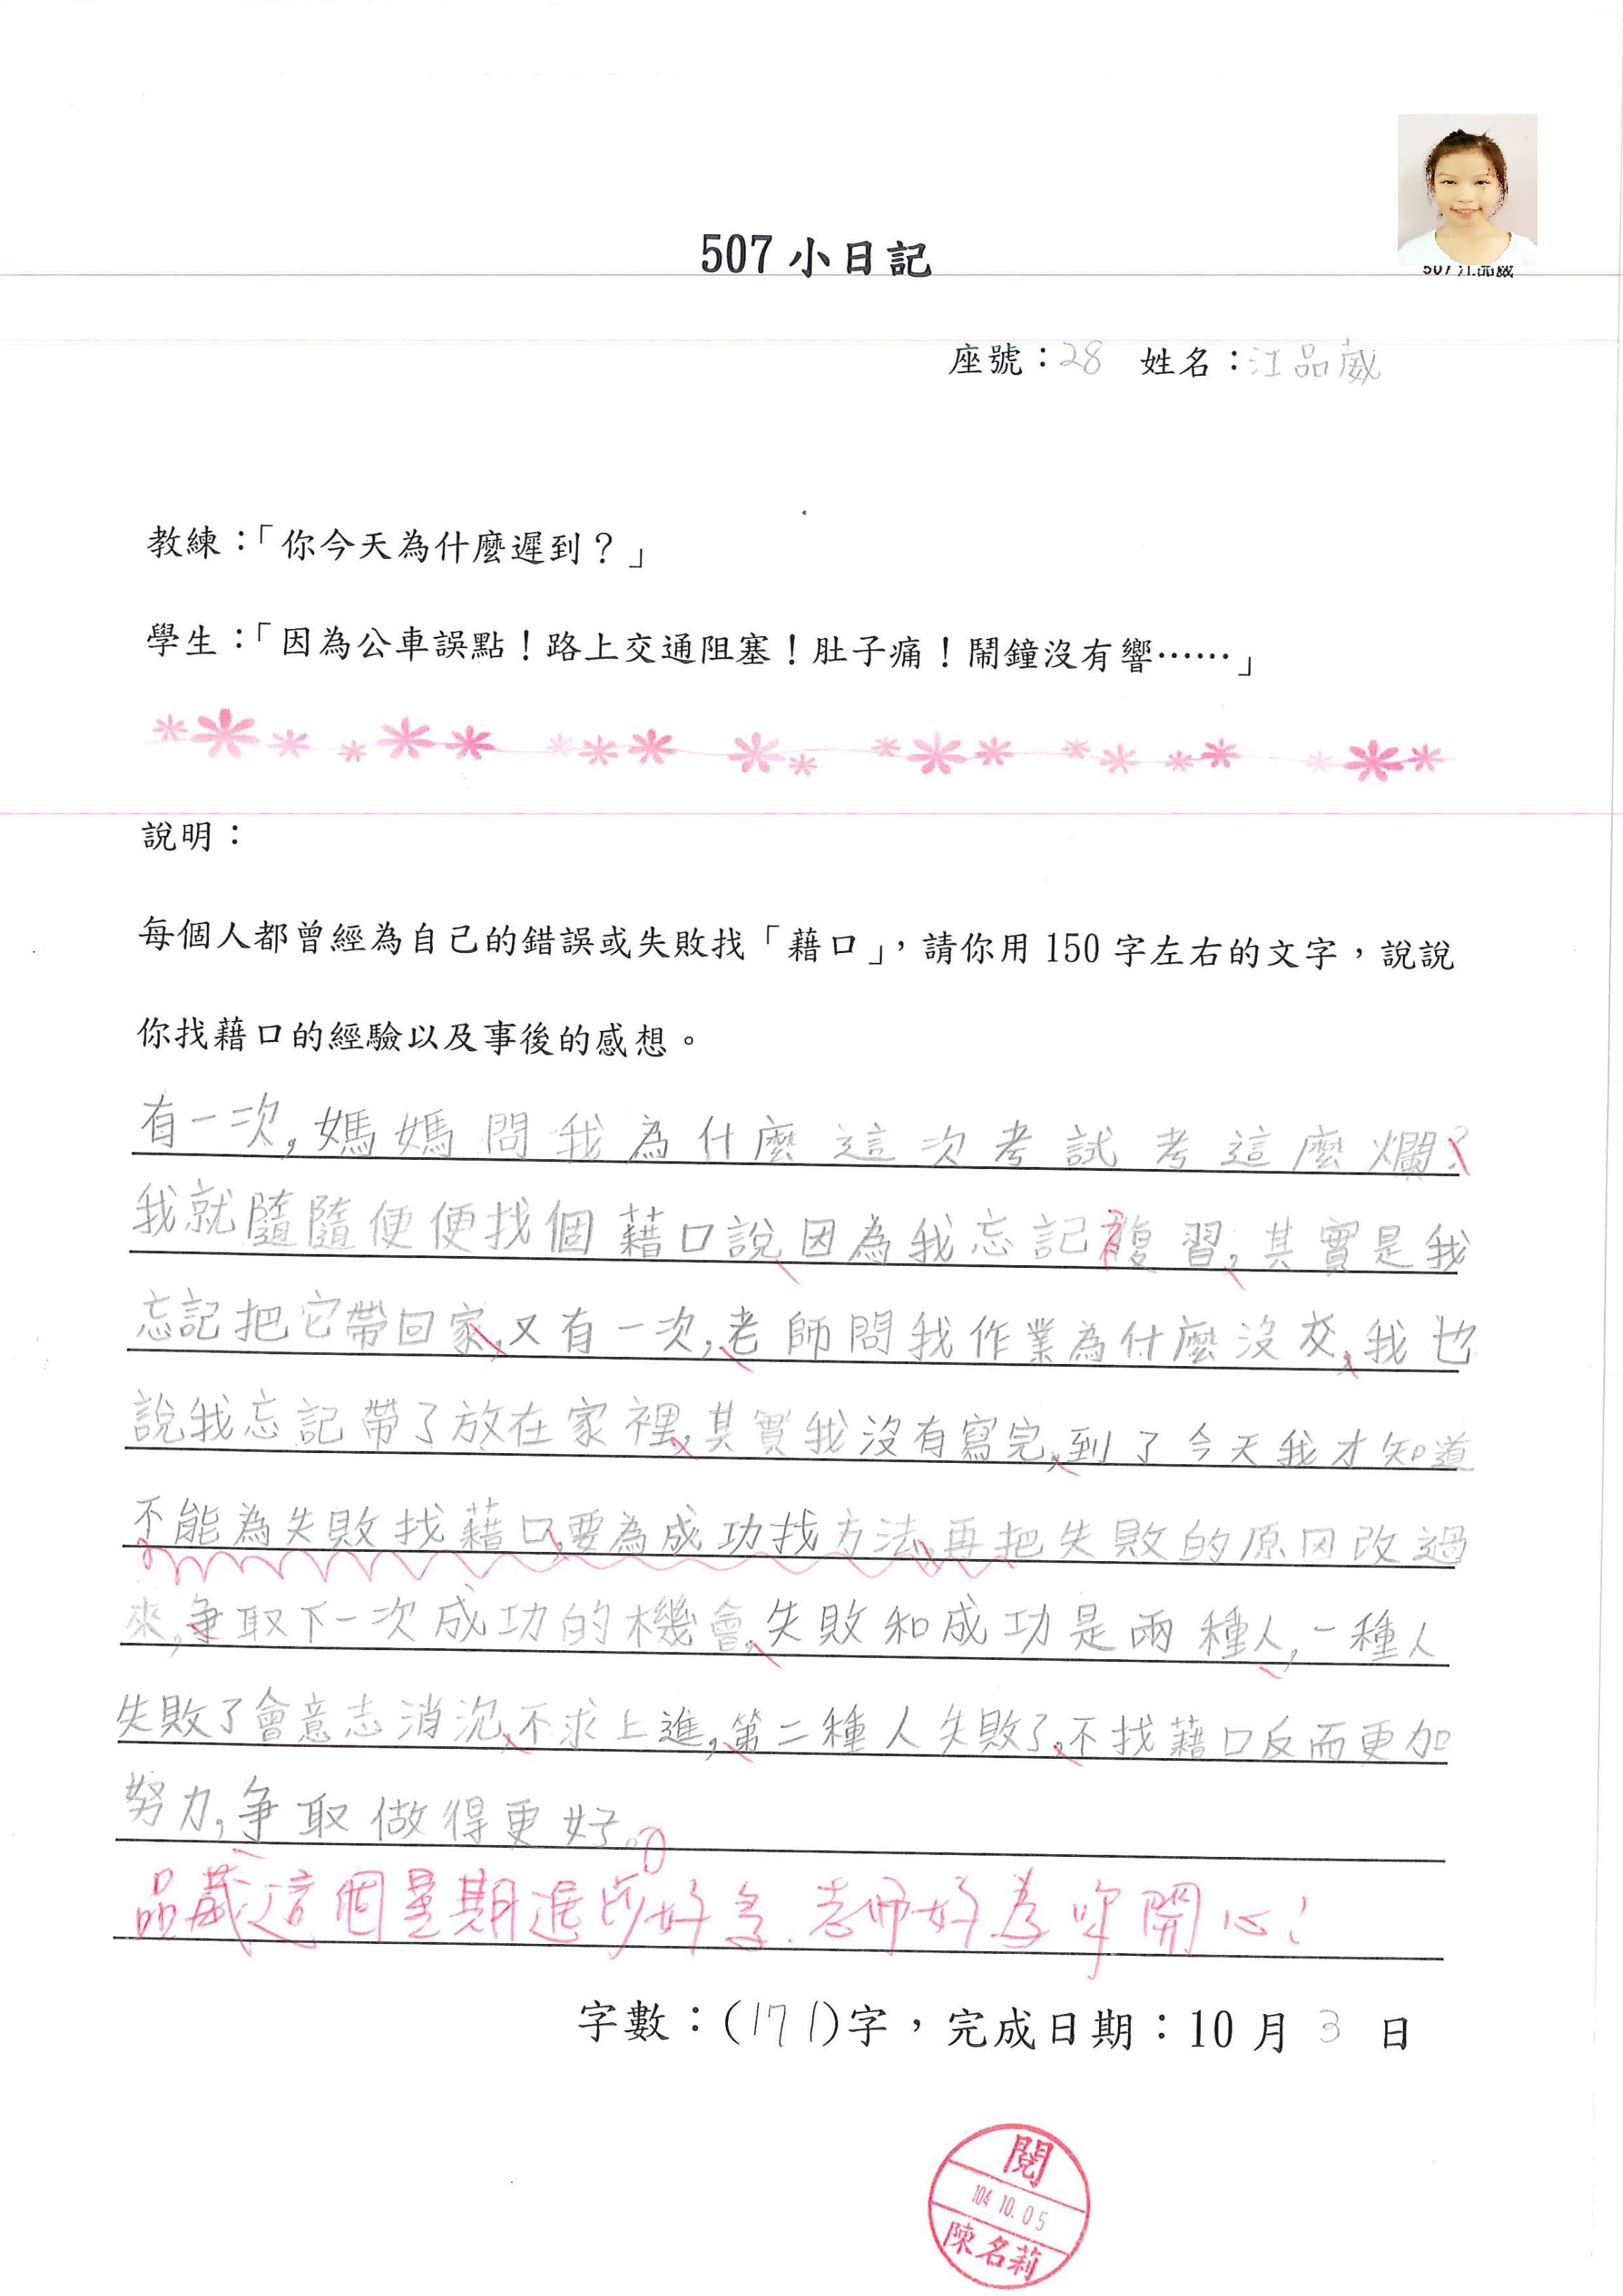 507 小日記
507 江品葳
座號：28 姓名：江品葳
教練：「你今天為什麼遲到？」
學生：「因為公車誤點！路上交通阻塞！肚子痛！鬧鐘沒有響……」
說明：
每個人都曾經為自己的錯誤或失敗找「藉口」，請你用 150 字左右的文字，說說
你找藉口的經驗以及事後的感想。
有一次，媽媽問我為什麼這次考試考這麼爛？
我就隨隨便便找個藉口說因為我忘記複習，其實是我
忘記把它帶回家，又有一次，老師問我作業為什麼沒交，我也
說我忘記帶了放在家裡，其實我沒有寫完，到了今天我才知道
不能為失敗找藉口，要為成功找方法，再把失敗的原因改過
來，爭取下一次成功的機會，失敗和成功是兩種人，一種人
失敗了會意志消沉，不求上進，第二種人失敗了，不找藉口反而更加
努力，爭取做得更好。
品葳這個星期進步好多，老師好為妳開心！
字數：(171)字，完成日期：10 月 3 日
閱
104.10.05
陳名莉